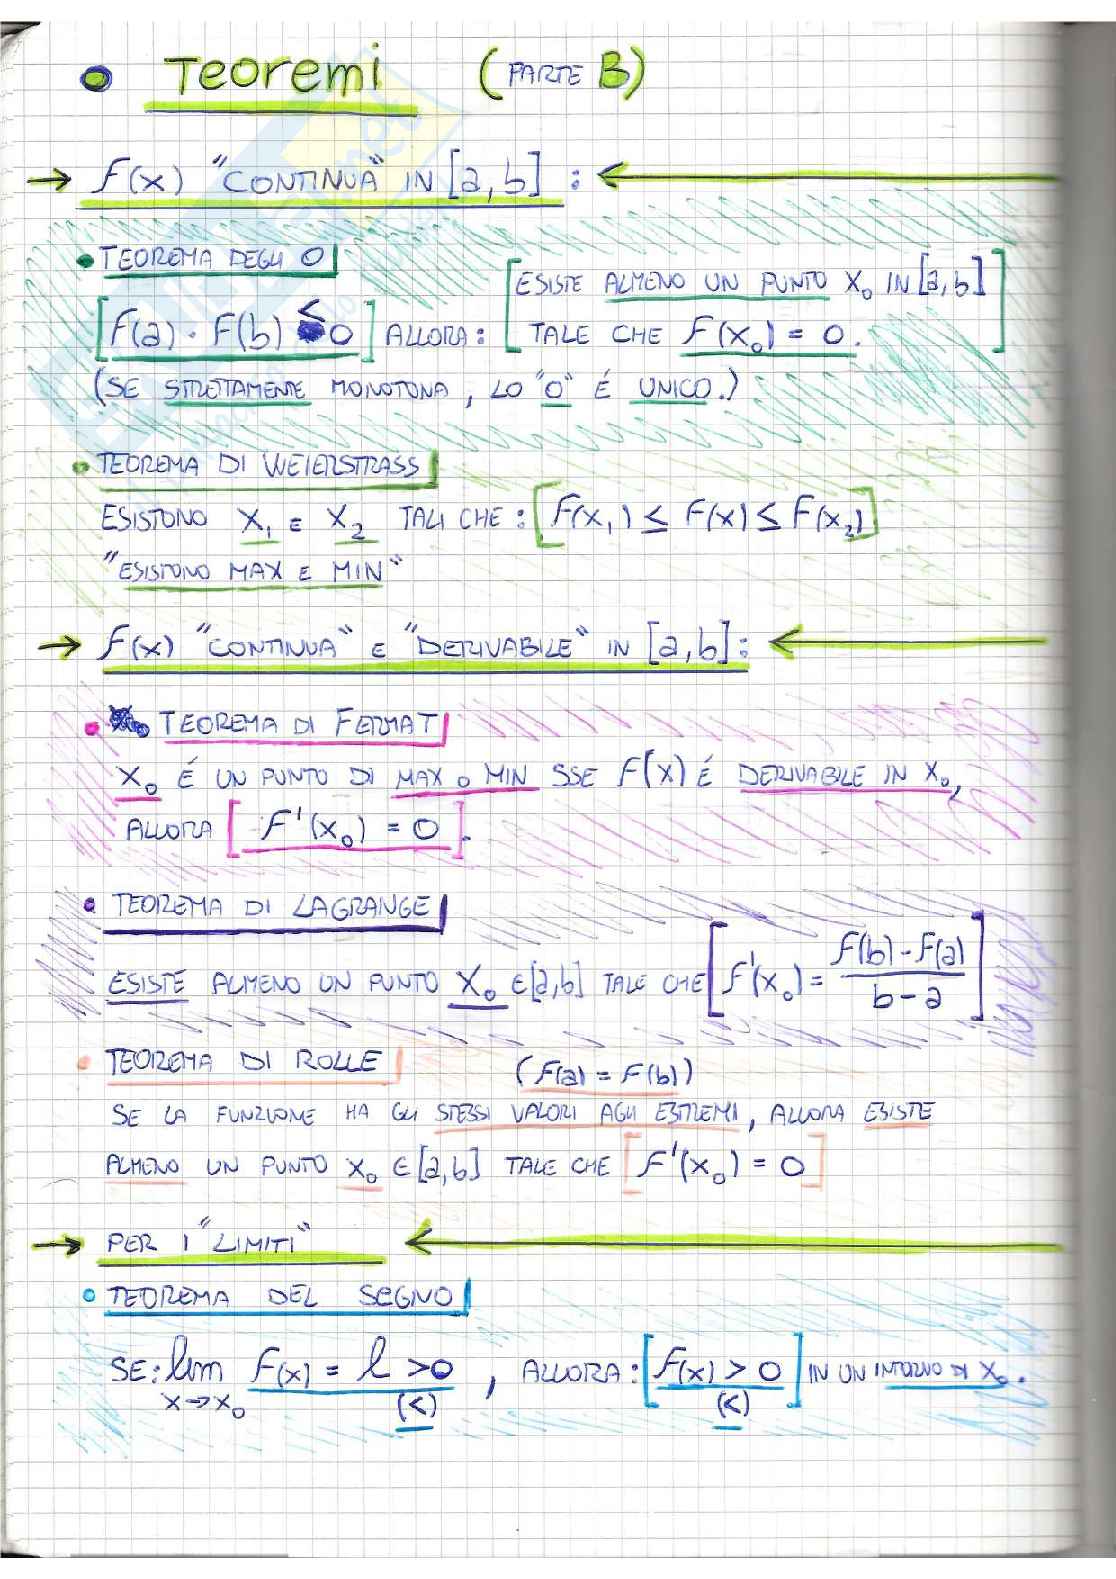 • Teoremi (PARTE B)
→ f(x) "CONTINUA" IN [a, b] : ←
• TEOREMA DEGLI 0
[f(a) · f(b) ≤ 0] ALLORA: [ESISTE ALMENO UN PUNTO x₀ IN [a, b]
TALE CHE f(x₀) = 0.]
(SE STRETTAMENTE MONOTONA, LO "0" É UNICO.)
• TEOREMA DI WEIERSTRASS
ESISTONO x₁ E x₂ TALI CHE: [f(x₁) ≤ f(x) ≤ f(x₂)]
"ESISTONO MAX E MIN"
→ f(x) "CONTINUA" E "DERIVABILE" IN [a, b]: ←
• TEOREMA DI FERMAT
x₀ É UN PUNTO DI MAX O MIN SSE f(x) É DERIVABILE IN x₀,
ALLORA [f'(x₀) = 0].
• TEOREMA DI LAGRANGE
ESISTE ALMENO UN PUNTO x₀ ∈ [a, b] TALE CHE [f'(x₀) = (f(b) - f(a)) / (b - a)]
• TEOREMA DI ROLLE (f(a) = f(b))
SE LA FUNZIONE HA GLI STESSI VALORI AGLI ESTREMI, ALLORA ESISTE
ALMENO UN PUNTO x₀ ∈ [a, b] TALE CHE [f'(x₀) = 0]
→ PER I "LIMITI" ←
• TEOREMA DEL SEGNO
SE: lim x→x₀ f(x) = l > 0 (<), ALLORA: [f(x) > 0 (<)] IN UN INTORNO DI x₀.